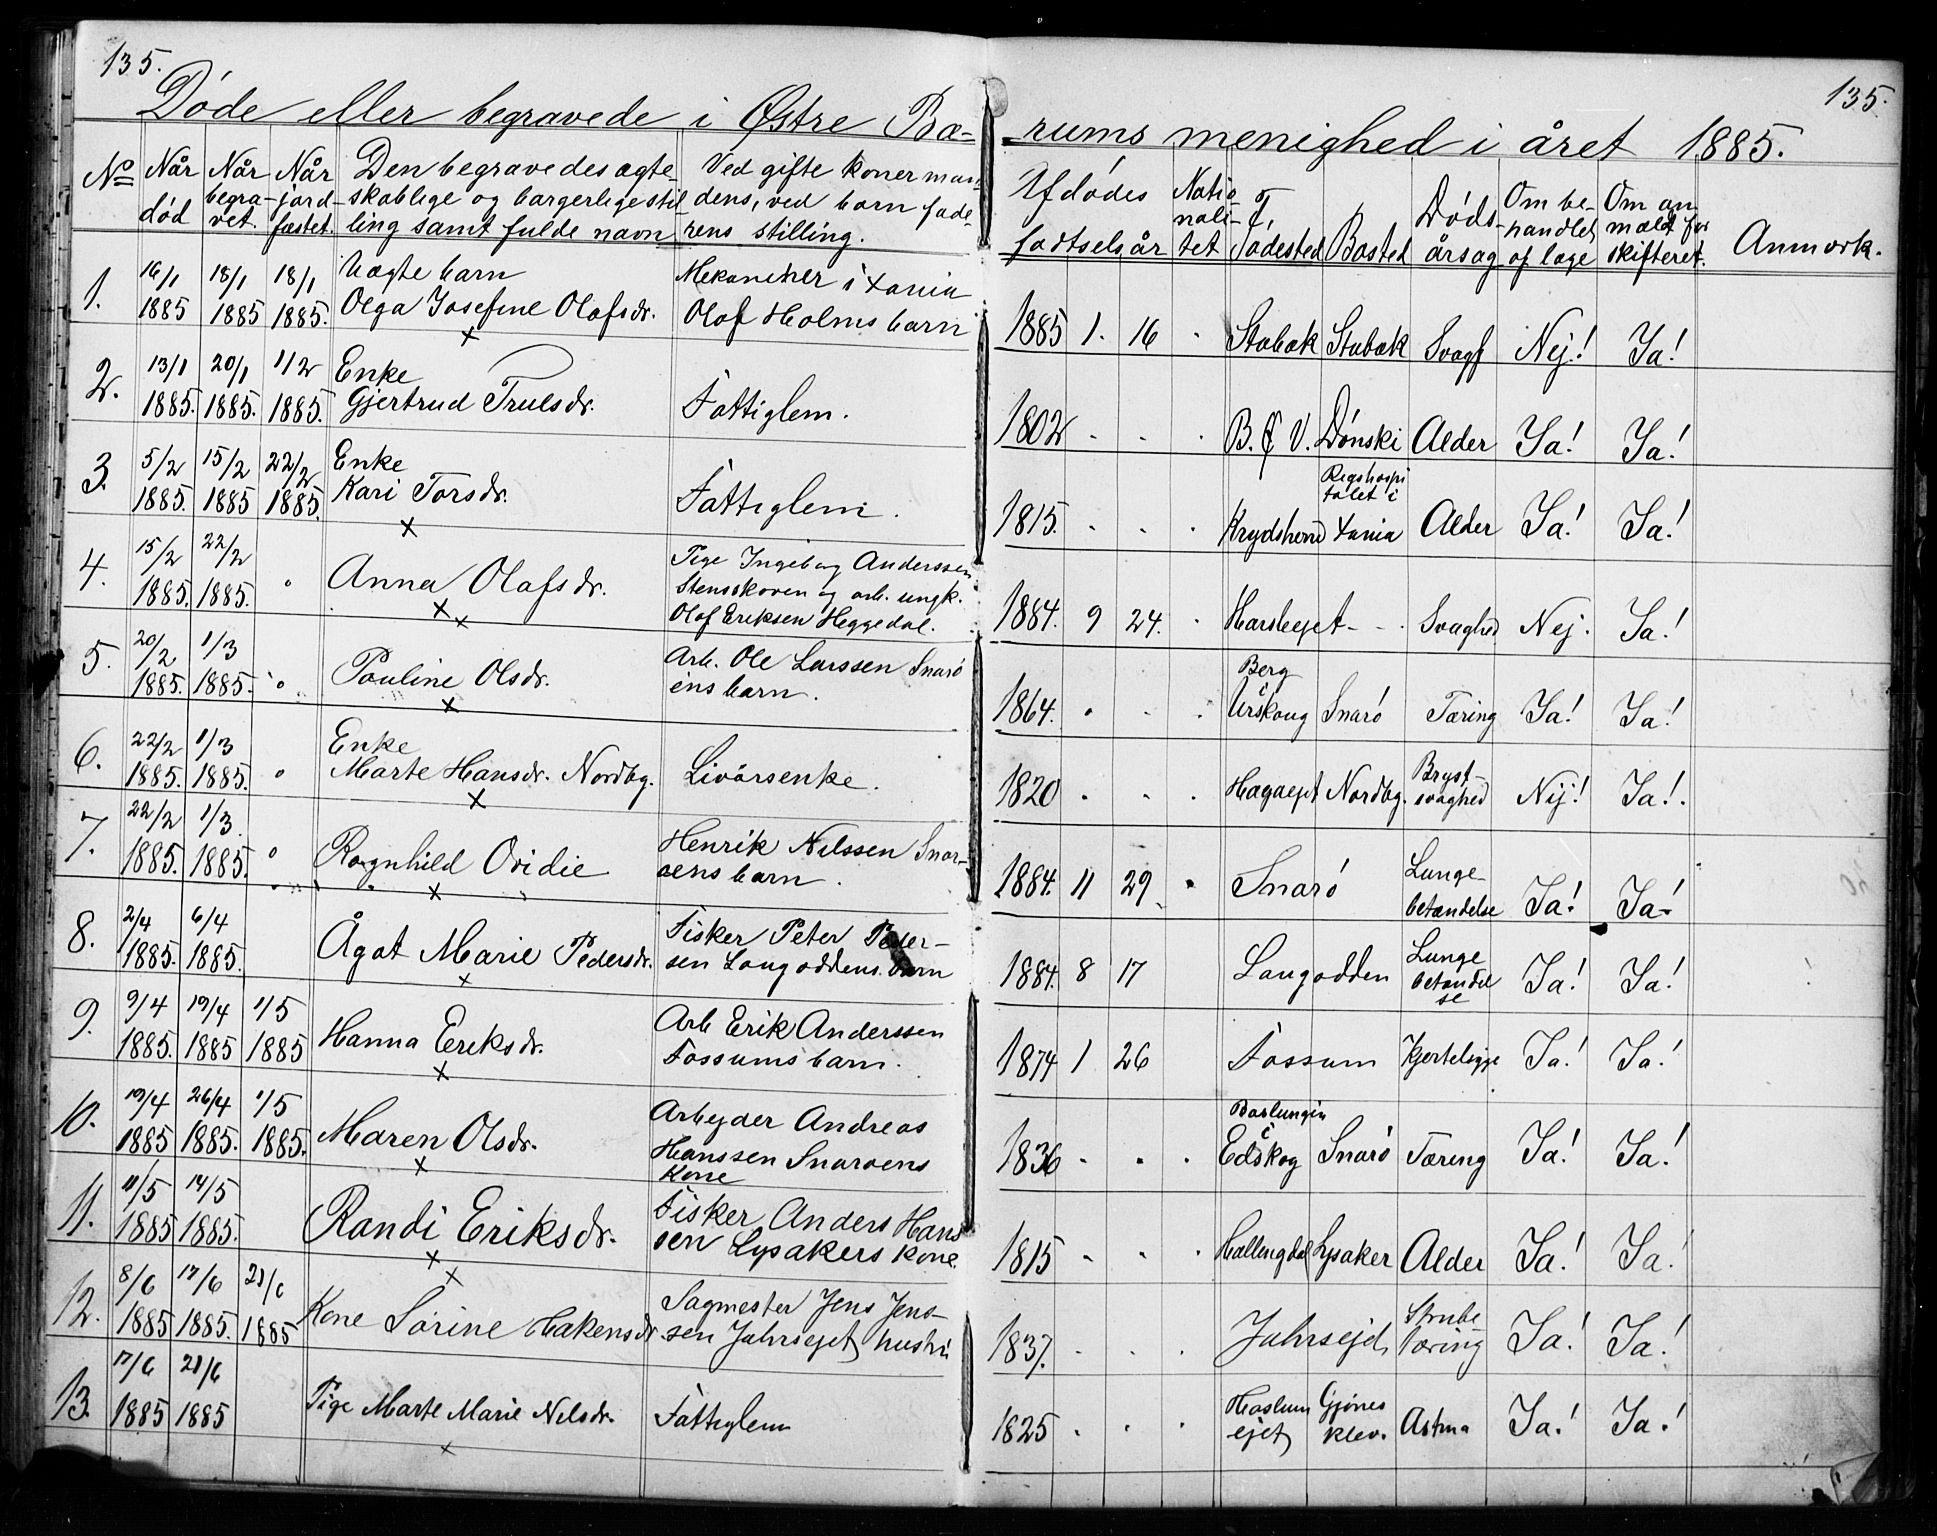 135.
135.
Døde eller begravede i Østre Bæ-
rums menighed i året 1885.
No
Når død
Når begra-vet.
Når jord-fæstet.
Den begravedes ægte-
skablige og borgerlige stil-
ling samt fulde navn
Ved gifte koner man-
dens, ved børn fade-
rens stilling.
Afdødes
fødtselsår
Natio-
nali-
tet
Fødested
Bosted
Døds-
årsag
Om be-
handlet
af læge
Om an
mældt for
skifteret.
Anmærk.
1.
16/1 18/1 18/1 Uægte barn Mekaniker i Xania
1885 1885 1885. Olga Josefine Olafsdr. Olaf Holms barn
1885 1. 16 Stabæk Stabæk Svagh Nej! Ja!
2.
13/1 20/1 1/2 Enke
1885. 1885. 1885. Gjertrud Trulsdr. Fattiglem.
1802 B. & V. Dønski Alder Ja! Ja!
3.
5/2 15/2 22/2 Enke
1885. 1885 1885. Kari Torsdr. Fattiglem.
Rigshospi
talet i
1815. Alder Ja! Ja!
Xania
4.
15/2 22/2 Pige Ingebog Anderssen
1885. 1885. Anna Olafsdr. Stensskoven og arb. ungk.
Olaf Eriksen Heggedal.
1884. 9 24. Svaghed Nej. Ja!
5.
20/2 1/3 Arb. Ole Larssen Snarø
1885. 1885. Pauline Olsdr. ens barn.
Berg
i
1864. Urskoug Snarø Tæring Ja! Ja!
6.
22/2 1/3 Enke
1885. 1885. Marte Hansdr. Nordbg. Livørsenke.
Bryst-
1820 Hagaejet Nordbg. svaghed Nej! Ja!
7.
22/2 1/3 Henrik Nilssen Snar-
1885. 1885. Ragnhild Ovidie øens barn.
Lunge-
1884. 11 29 Snarø betændelse Ja! Ja!
8.
2/4 6/4 Fisker Peter Peder-
1885. 1885. Ågot Marie Pedersdr. sen Langoddens barn
Lunge
1884. 8 17 Langodden betændel Ja! Ja!
se
9.
9/4 19/4 1/5 Arb Erik Anderssen
1885. 1885 1885 Hanna Eriksdr. Fossums barn.
1874 1 26 Fossum Kjertelsyge Ja! Ja!
10.
19/4 26/4 1/5 Arbejder Andreas
1885 1885. 1885. Maren Olsdr. Hanssen Snarøens
Kone
i
1836 Edskog Snarø Tæring Ja! Ja!
11.
11/5 14/5 Fisker Anders Hans
1885 1885. Randi Eriksdr. sen Lysakers kone
1815 Hallingdal Lysaker Alder Ja! Ja!
12.
8/6 17/6 21/6 Sagmester Jens Jens-
1885 1885. 1885 Kone Sørine Hakensdr. sen Jahrsejet hustru
Strube
1837. Jahrsejet tæring Ja! Ja!
13.
17/6 21/6
1885 1885 Pige Marte Marie Nelsdr. Fattiglem
Haslum Gjønes
1825 ejet klev. Astma Ja! Ja!